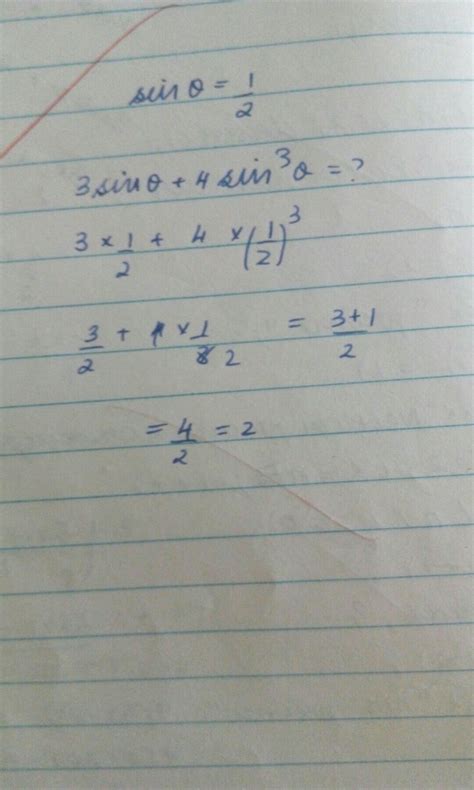 sin θ = 1/2
3 sin θ + 4 sin³ θ = ?
3 × 1/2 + 4 × (1/2)³
3/2 + 4 × 1/8 2 = 3+1/2
= 4/2 = 2